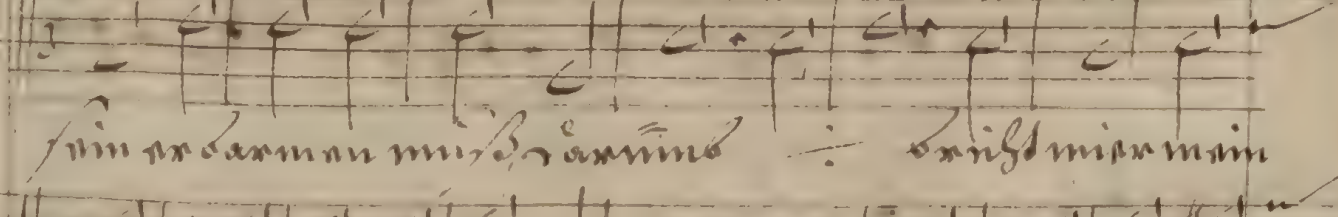 sein erbarmen muß, darumb ·/· bricht mier mein